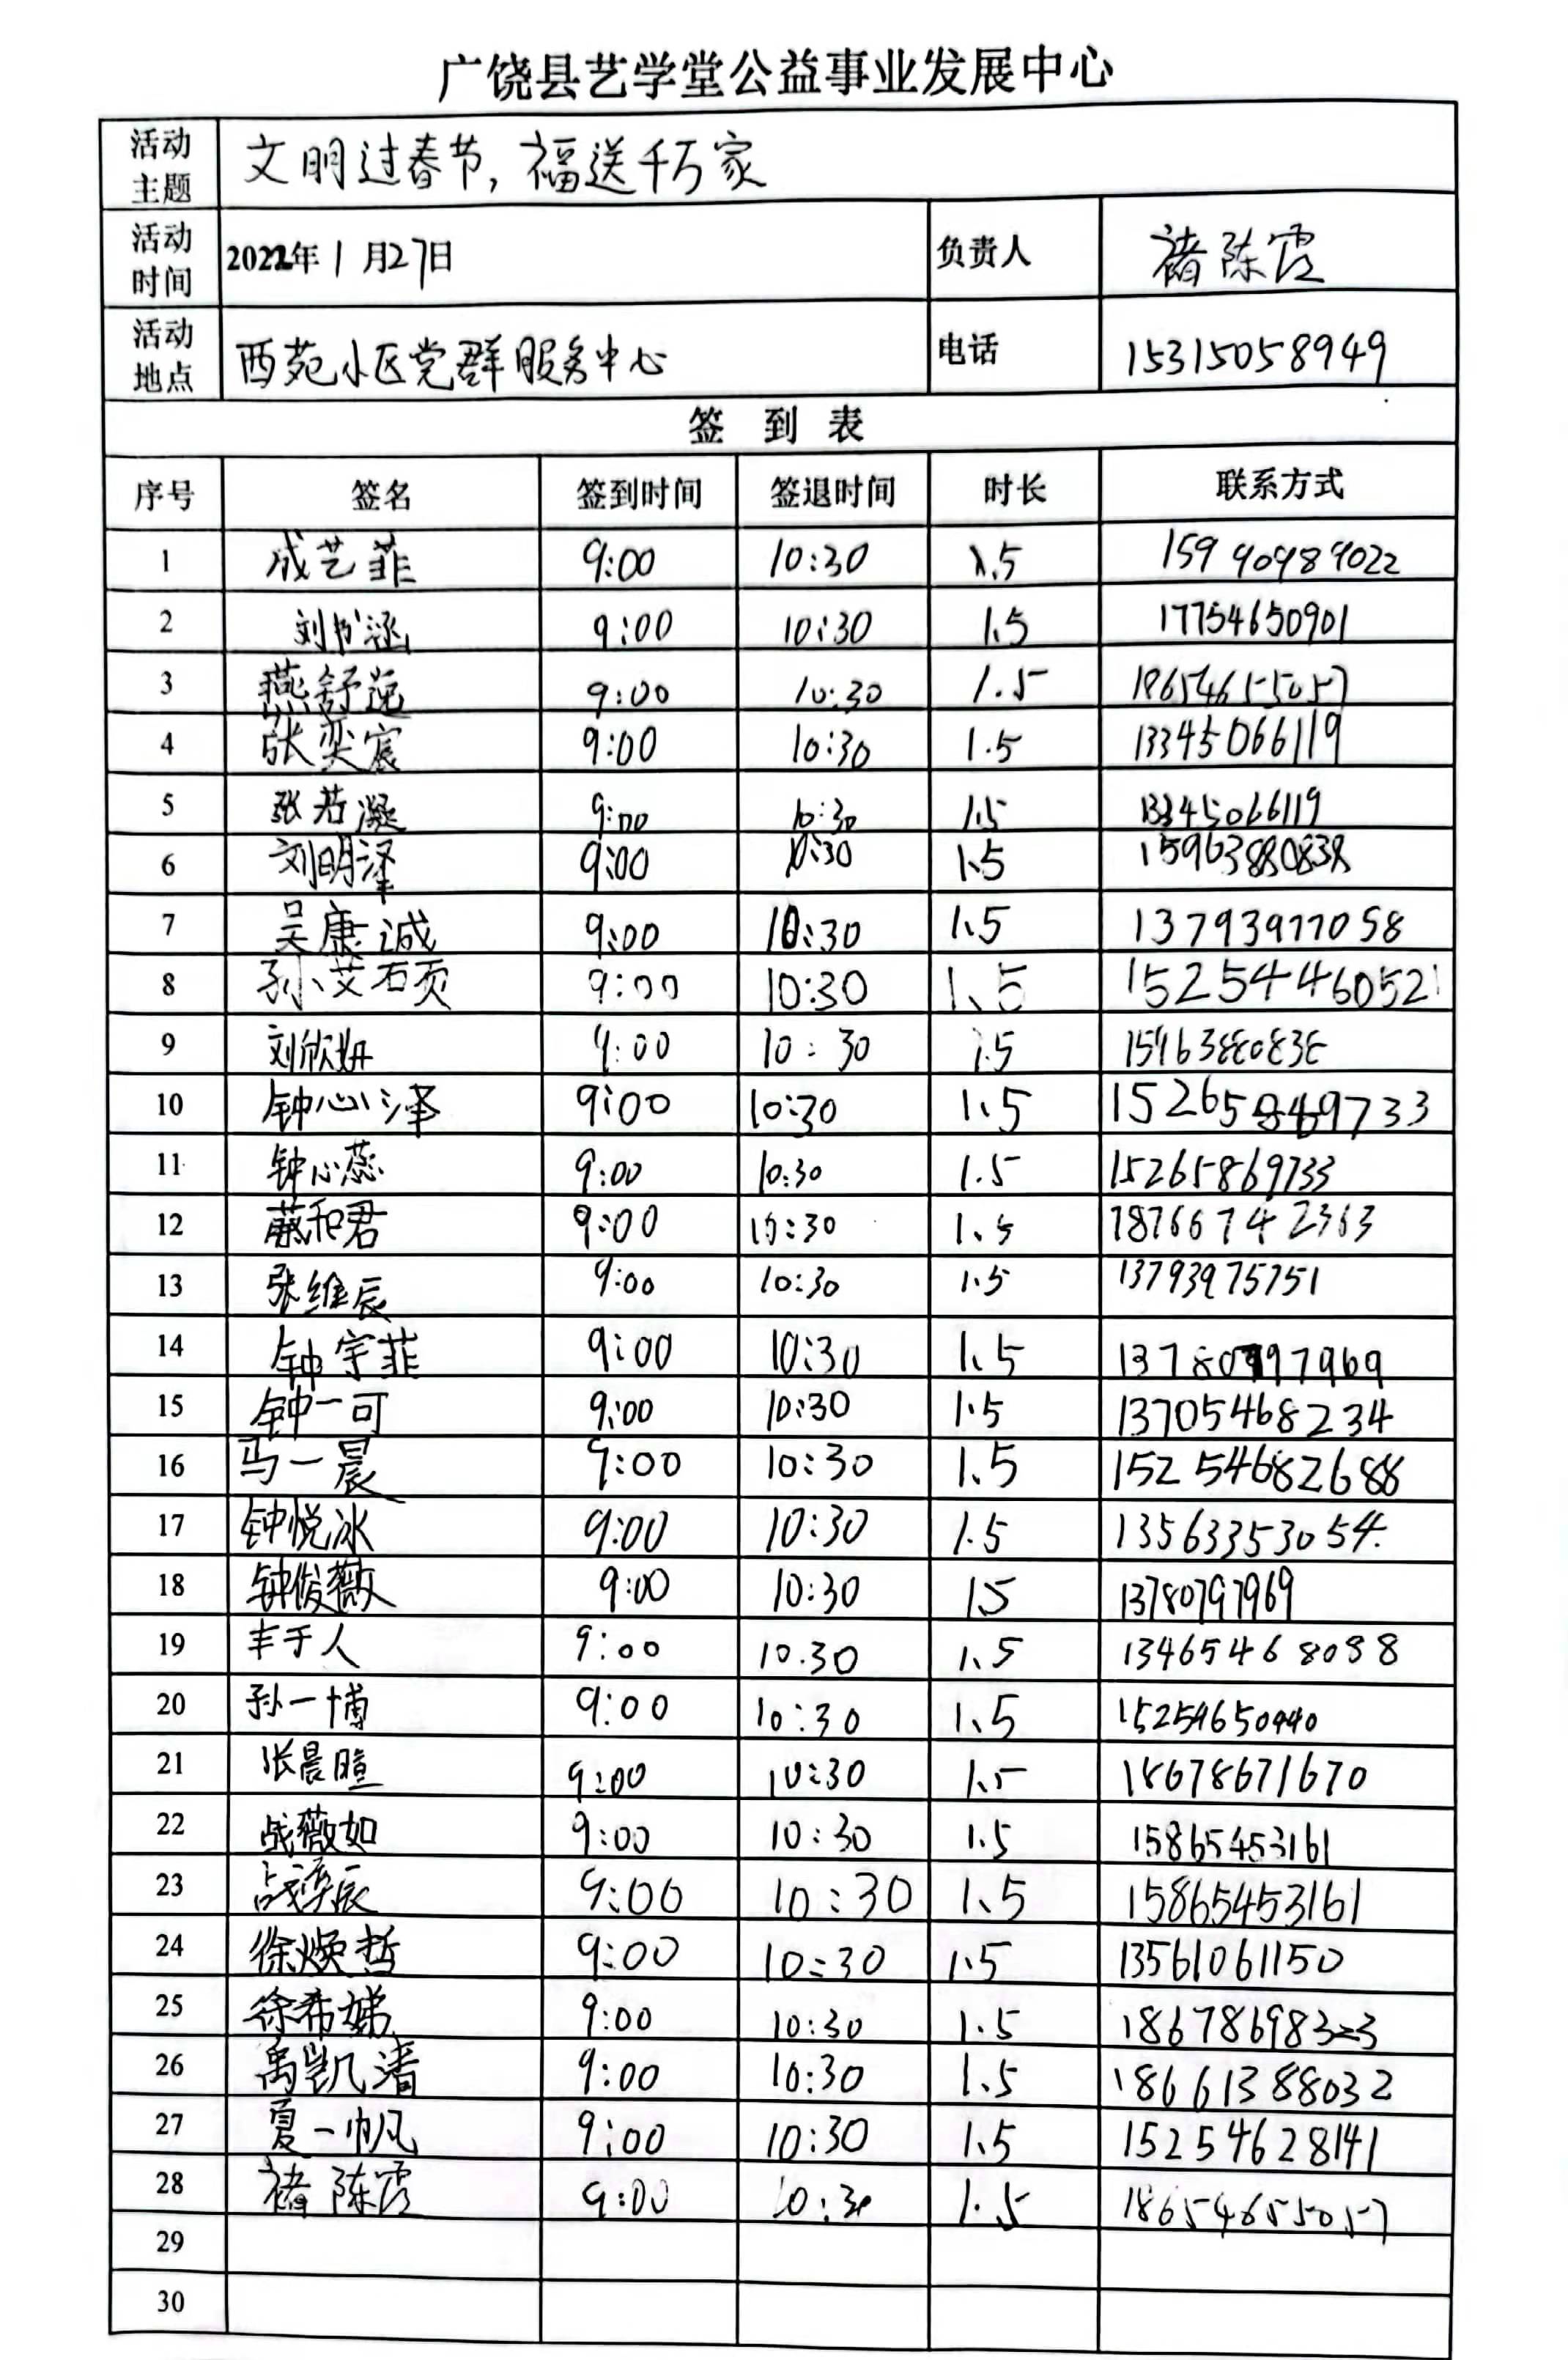 广饶县艺学堂公益事业发展中心
活动主题 文明过春节，福送千万家
活动时间 2022年1月27日 负责人 褚陈霞
活动地点 西苑小区党群服务中心 电话 15315058949
签到表
序号 签名 签到时间 签退时间 时长 联系方式
1 成艺菲 9:00 10:30 1.5
2 刘书涵 9:00 10:30 1.5 17754650901
3 燕舒逸 9:00 10:30 1.5 18654655057
4 张奕宸 9:00 10:30 1.5 13345066119
5 张若凝 9:00 10:30 1.5 13345066119
6 刘明泽 9:00 10:30 1.5 15963880838
7 吴康诚 9:00 10:30 1.5 13793977058
8 孙艾硕 9:00 10:30 1.5 15254446052
9 刘欣妍 9:00 10:30 1.5 15963880838
10 钟心泽 9:00 10:30 1.5
11 钟心蕊 9:00 10:30 1.5 15265869733
12 和君 9:00 10:30 1.5 18766742363
13 张维辰 9:00 10:30 1.5 13793975751
14 钟宇菲 9:00 10:30 1.5 13780797969
15 钟一可 9:00 10:30 1.5 13705468234
16 马一晨 9:00 10:30 1.5 15254682688
17 钟悦冰 9:00 10:30 1.5 13563353054
18 钟俊薇 9:00 10:30 1.5 13780797969
19 丰于人 9:00 10:30 1.5 13465468088
20 孙一博 9:00 10:30 1.5 15254650440
21 张晨暄 9:00 10:30 1.5 18678671670
22 战薇如 9:00 10:30 1.5 15865453161
23 战奕辰 9:00 10:30 1.5 15865453161
24 徐焕哲 9:00 10:30 1.5 13561061150
25 徐希娣 9:00 10:30 1.5 18678698323
26 禹凯清 9:00 10:30 1.5 18661388032
27 夏一帆 9:00 10:30 1.5 15254628141
28 褚陈霞 9:00 10:30 1.5 18654655057
29
30